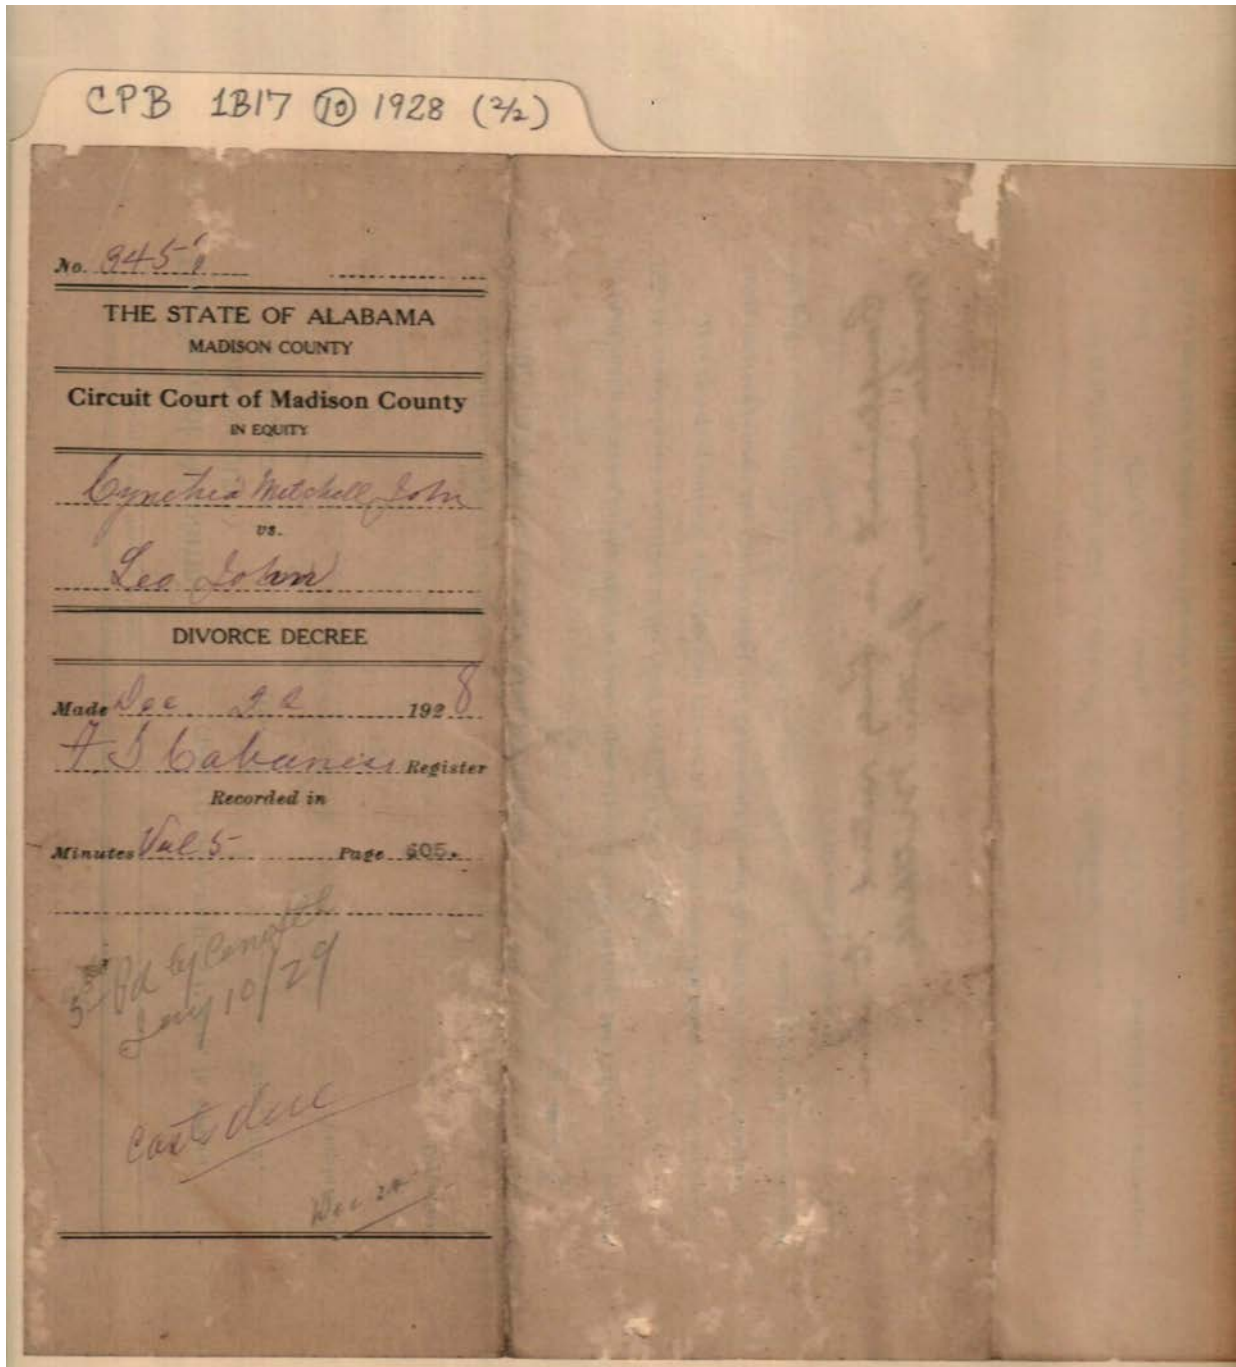 CPB 1B17 (10) 1928 (2/2)
No. 945
THE STATE OF ALABAMA
MADISON COUNTY
Circuit Court of Madison County
IN EQUITY
Cynthia Mitchell John
vs.
Leo John
DIVORCE DECREE
Made Dec 1928
F S Cabaniss Register
Recorded in
Minutes Vol 5 Page 605.
Pd by
Jany 10/29
Costs due
Dec 24